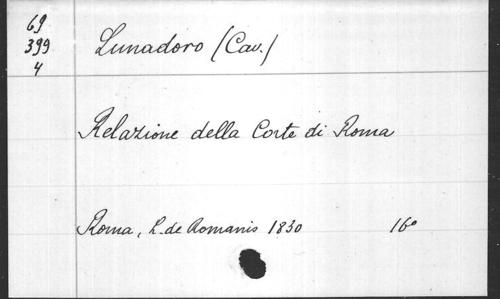 69
399
4
Lunadoro (Cav.)
Relazione della Corte di Roma
Roma, L. de Romanis 1830 16°